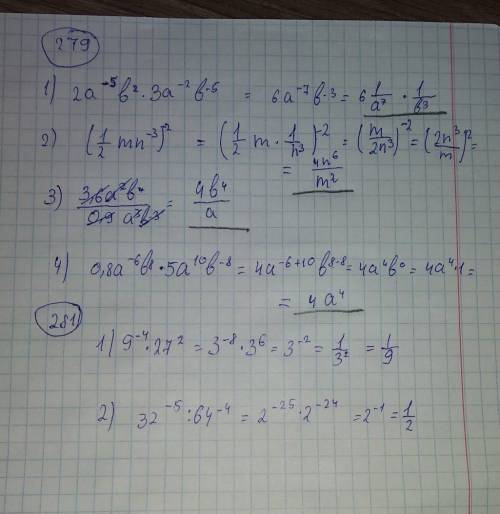 279
1) 2a⁻⁵b² · 3a⁻²b⁻⁵ = 6a⁻⁷b⁻³ = 6 1/a⁷ · 1/b³
2) (1/2 mn⁻³)² = (1/2 m · 1/n³)⁻² = (m/2n³)⁻² = (2n³/m)² =
= 4n⁶/m²
3) 3,6a²b⁴/0,9 a³b³ = 4b⁴/a
4) 0,8a⁻⁶b⁸ · 5a¹⁰b⁻⁸ = 4a⁻⁶⁺¹⁰b⁸⁻⁸ = 4a⁴b⁰ = 4a⁴·1 =
= 4a⁴
281
1) 9⁻⁴ · 27² = 3⁻⁸ · 3⁶ = 3⁻² = 1/3² = 1/9
2) 32⁻⁵ : 64⁻⁴ = 2⁻²⁵ · 2⁻²⁴ = 2⁻¹ = 1/2